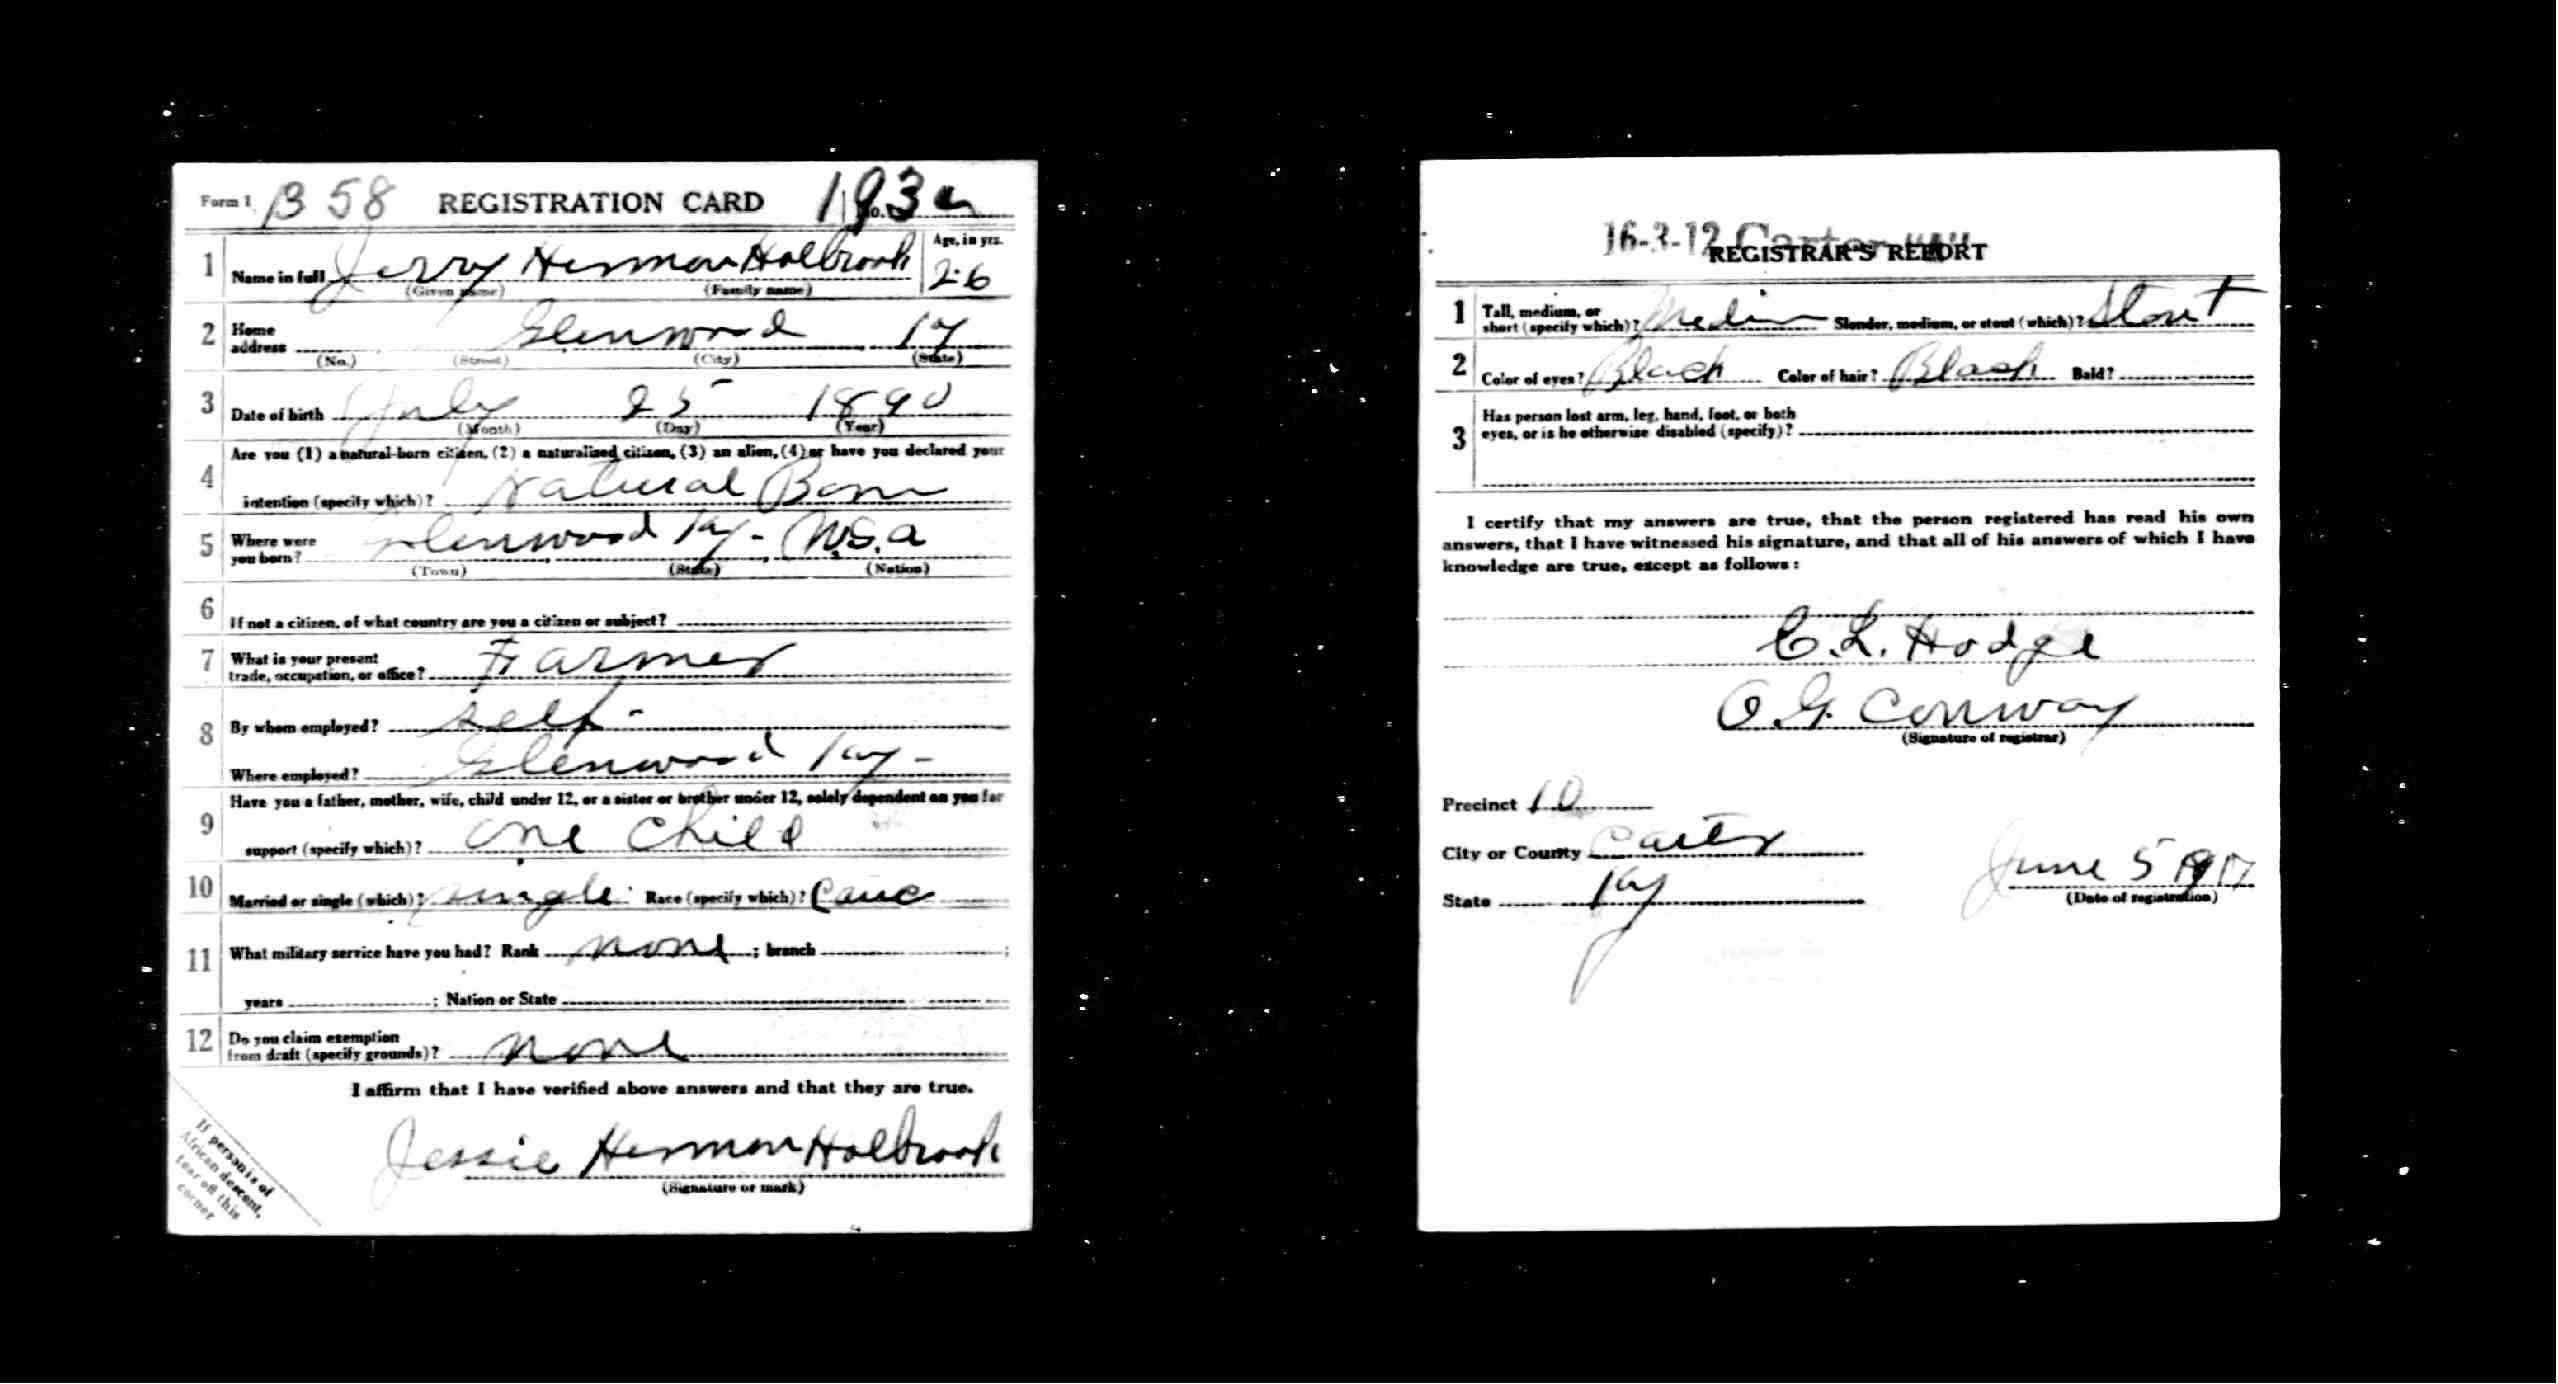 Form 1 B 58 REGISTRATION CARD No. 193
1 Name in full Jerry Herman Holbrook Age, in yrs. 26
(Given name) (Family name)
2 Home address Glenwood Ky
(No.) (Street) (City) (State)
3 Date of birth July 25 1890
(Month) (Day) (Year)
4 Are you (1) a natural-born citizen, (2) a naturalized citizen, (3) an alien, (4) or have you declared your
intention (specify which)? Natural Born
5 Where were you born? Glenwood Ky - U.S.a
(Town) (State) (Nation)
6 If not a citizen, of what country are you a citizen or subject?
7 What is your present trade, occupation, or office? Farmer
8 By whom employed? self -
Where employed? Glenwood Ky -
9 Have you a father, mother, wife, child under 12, or a sister or brother under 12, solely dependent on you for
support (specify which)? one child
10 Married or single (which)? single Race (specify which)? Cauc
11 What military service have you had? Rank none ; branch ;
years ; Nation or State
12 Do you claim exemption from draft (specify grounds)? none
I affirm that I have verified above answers and that they are true.
Jessie Herman Holbrook
(Signature or mark)
If person is of
African descent,
tear off this
corner
16-3-12 Carter "A"
REGISTRAR'S REPORT
1 Tall, medium, or short (specify which)? Medium Slender, medium, or stout (which)? Stout
2 Color of eyes? Black Color of hair? Black Bald?
3 Has person lost arm, leg, hand, foot, or both
eyes, or is he otherwise disabled (specify)?
I certify that my answers are true, that the person registered has read his own
answers, that I have witnessed his signature, and that all of his answers of which I have
knowledge are true, except as follows:
C.L. Hodge
O.G. Conway
(Signature of registrar)
Precinct 10
City or County Carter
State Ky
June 5 1917
(Date of registration)